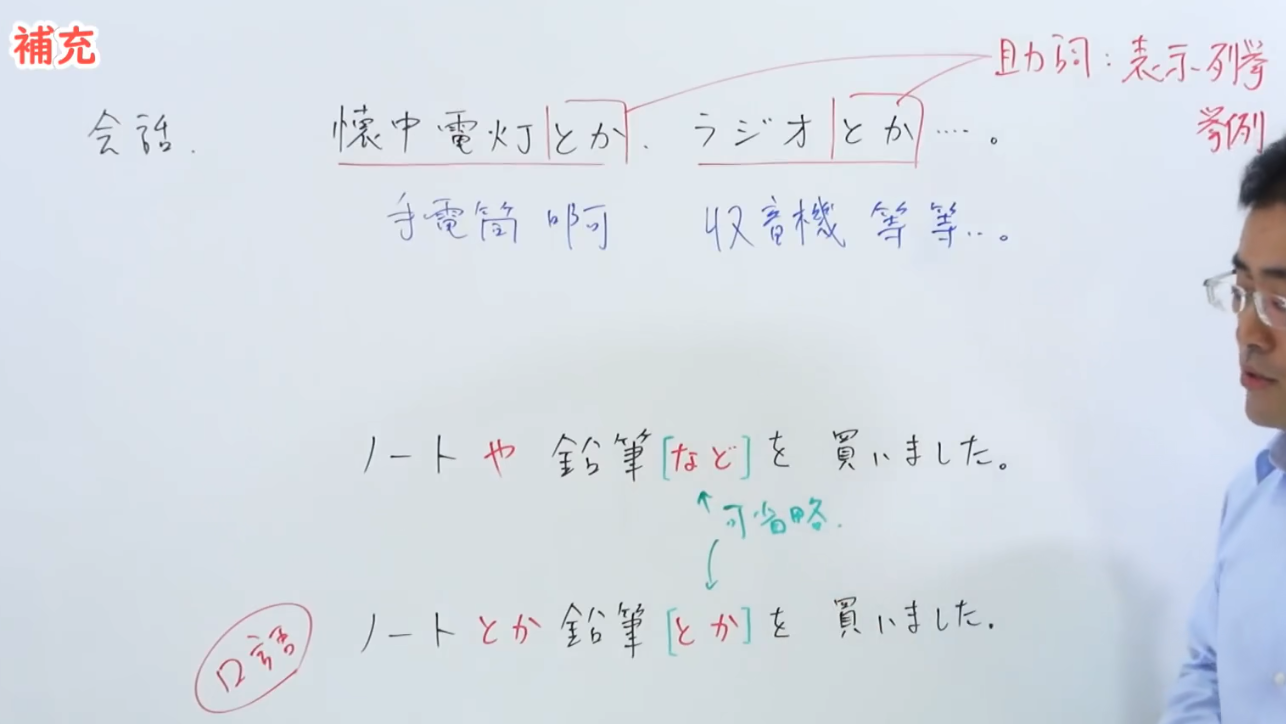 補充
助詞：表示列挙
挙例
会話. 懐中電灯とか. ラジオとか….。
手電筒 啊 収音機 等等…。
ノートや鉛筆[など]を買いました。
可省略.
口語 ノートとか鉛筆[とか]を買いました.